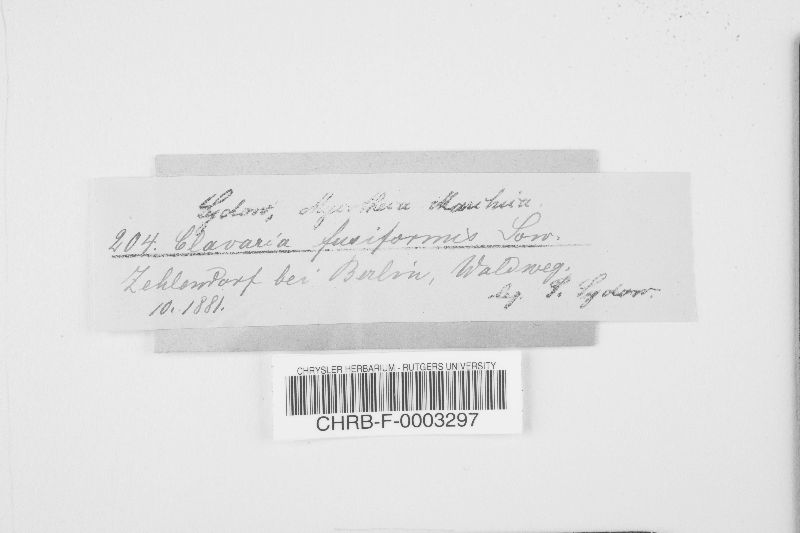 Sydow, Mycotheca Marchica.
204. Clavaria fusiformis Sow.
Zehlendorf bei Berlin, Waldweg.
10. 1881. leg. P. Sydow.
CHRYSLER HERBARIUM - RUTGERS UNIVERSITY
CHRB-F-0003297